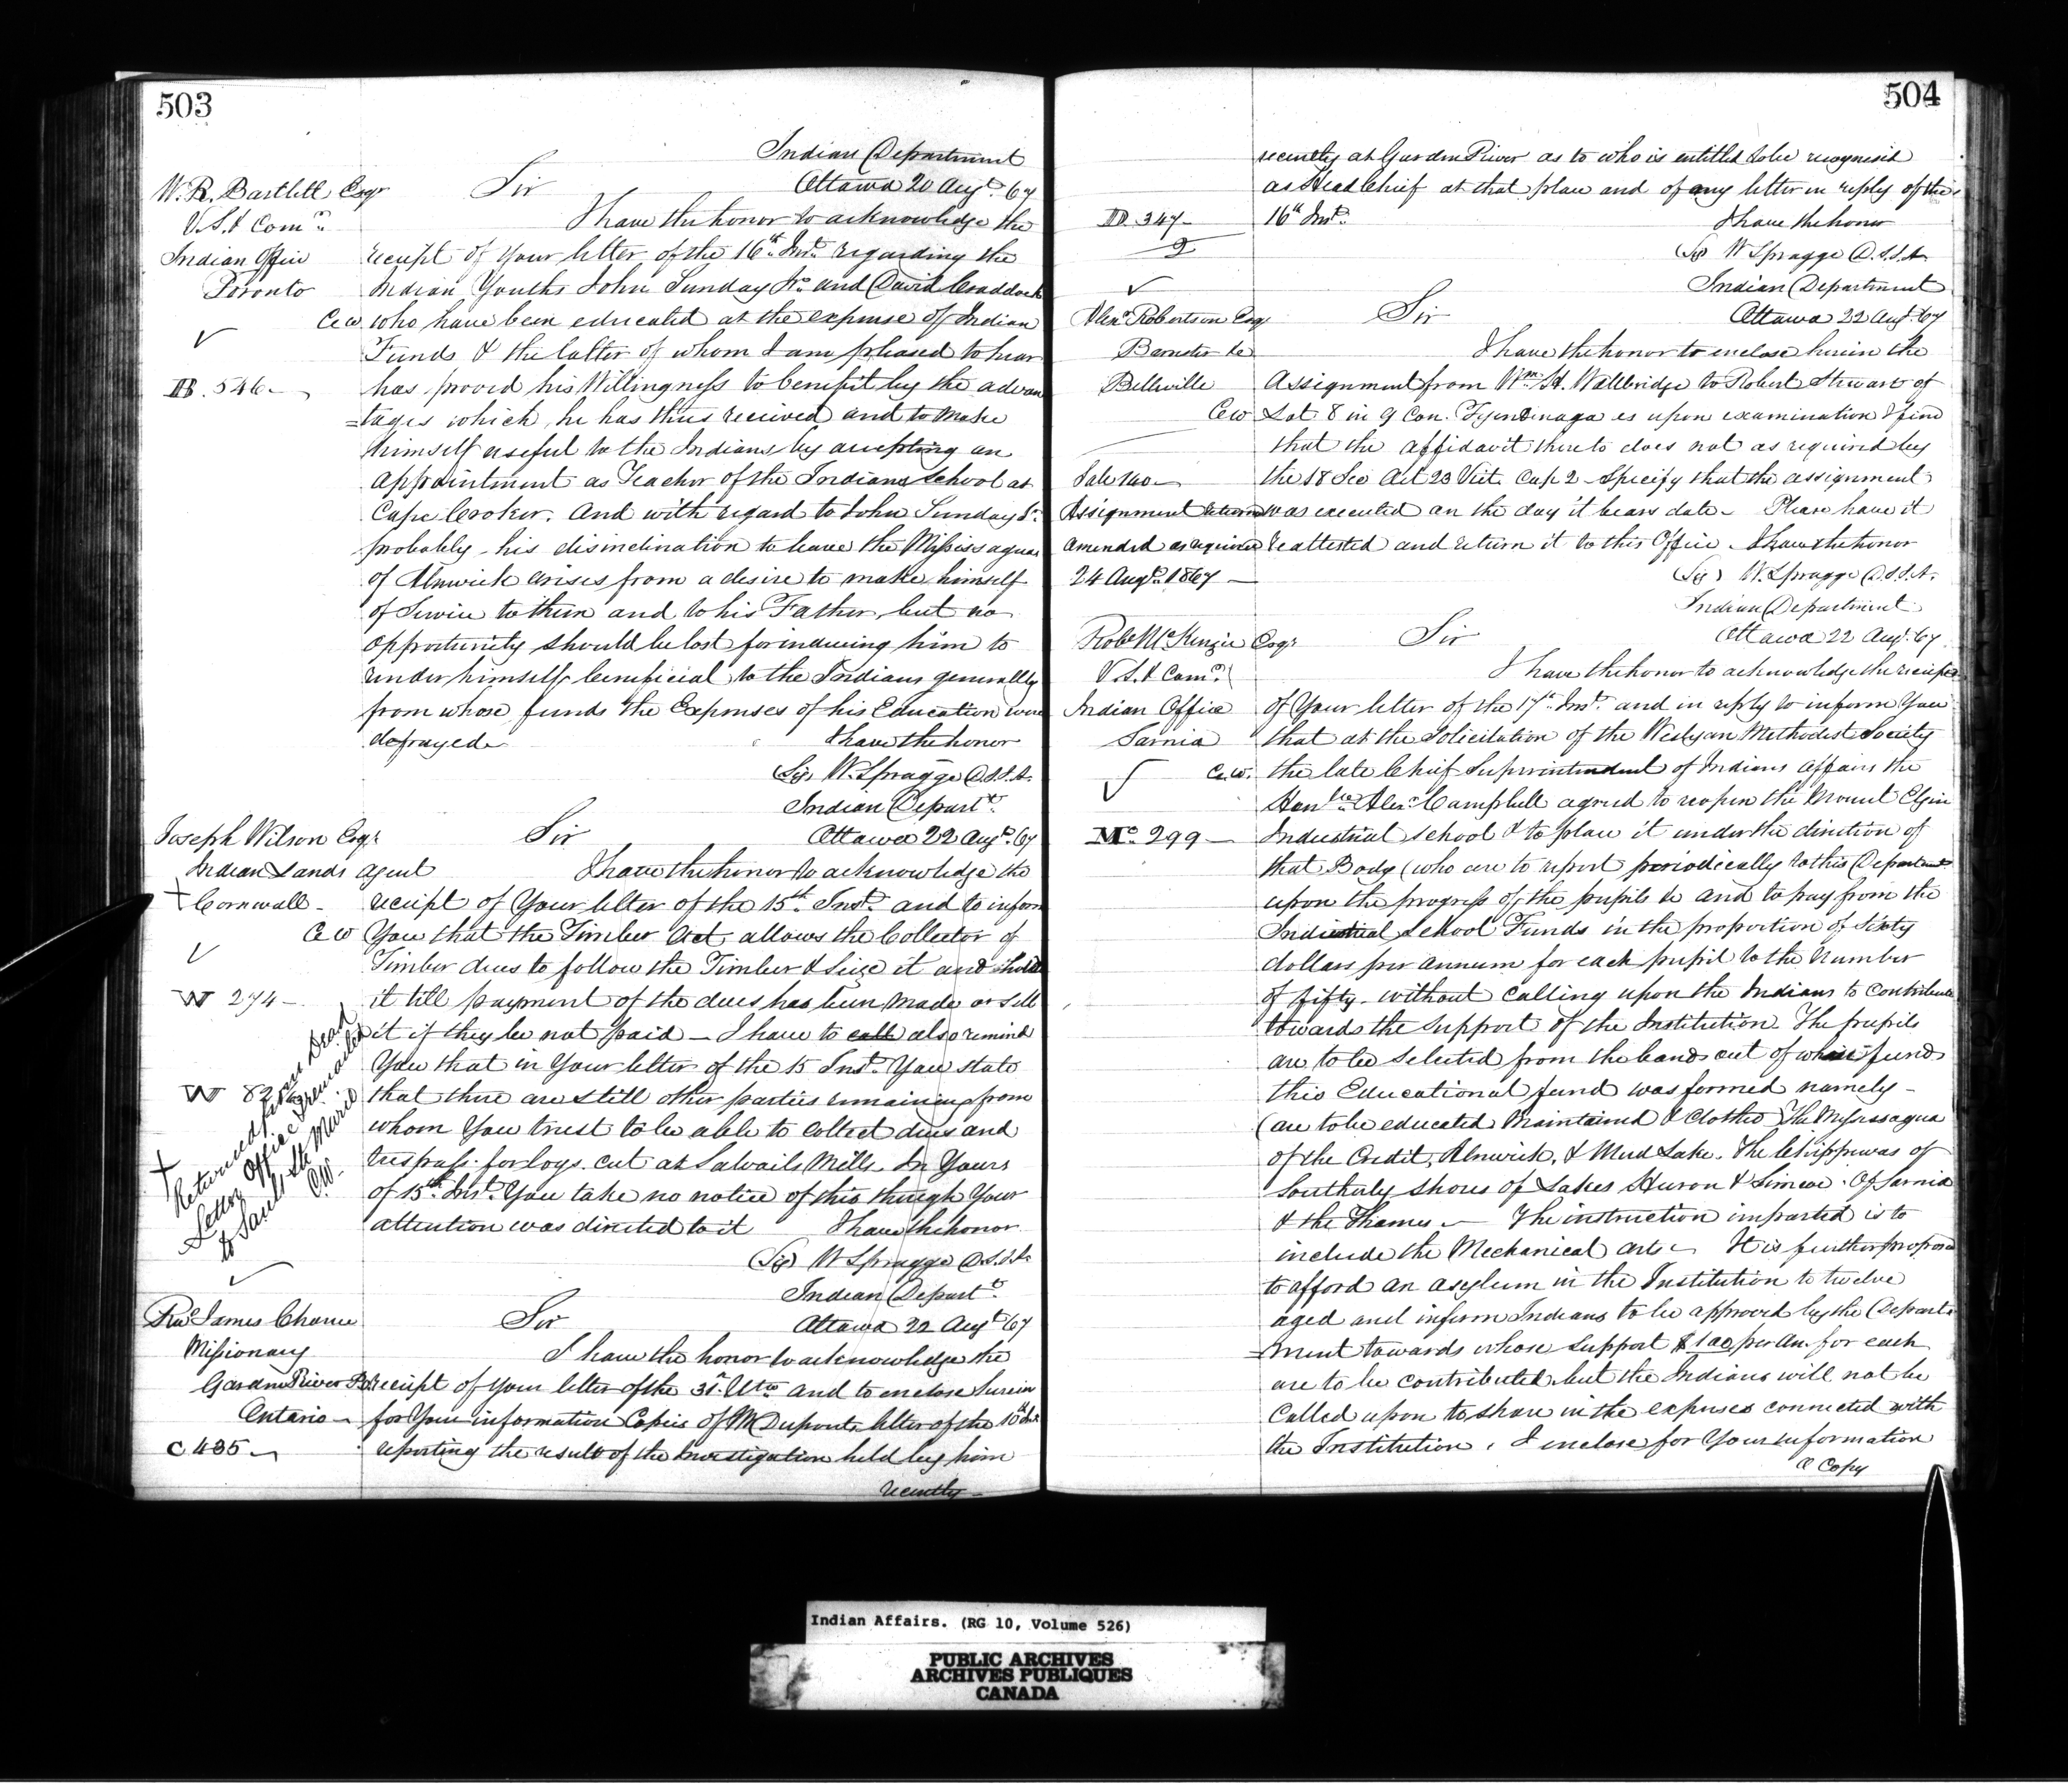 503
Indian Department
Ottawa 20 Augt. 67
W. R. Bartlett Esqr
V. S. & Comr.
Indian Office
Toronto
C W
B. 546
Sir
I have the honor to acknowledge the
receipt of your letter of the 16th Inst. regarding the
Indian Youths John Sunday Jr. and David Craddock
who have been educated at the expense of Indian
Funds & the latter of whom I am pleased to hear
has proved his Willingness to benefit by the advan
=tages which he has thus received and to make
himself useful to the Indians by accepting an
appointment as Teacher of the Indian School at
Cape Croker. And with regard to John Sunday Jr.
probably his disinclination to leave the Missisaguas
of Alnwick arises from a desire to make himself
of Service to them and to his Father, but no
opportunity should be lost for inducing him to
render himself beneficial to the Indians generally
from whose funds the Expenses of his Education were
defrayed.
I have the honor
(Sg) W. Spragge D.S.I.A.
Indian Depart t.
Ottawa 22 Augt. 67
Joseph Wilson Esqr
Indian Lands Agent
+ Cornwall
C W
W 274
Sir
I have the honor to acknowledge the
receipt of Your letter of the 15th Inst. and to inform
You that the Timber Act allows the Collector of
Timber dues to follow the Timber & Seize it and hold
it till payment of the dues has been made or sell
it if they be not paid — I have to call also remind
You that in Your letter of the 15 Inst. You state
that there are still other parties remaining from
whom You trust to be able to collect dues and
trespass for logs cut at Salvails Mills. In Yours
of 15th Inst. You take no notice of this though Your
attention was directed to it
I have the honor
(Sg) W Spragge D.S.I.A.
+ Returned from Dead
Letter Office & remailed
to Sault Ste Marie
C.W.
Indian Depart t.
Ottawa 22 Augt 67
Rev James Chance
Missionary
Garden River P.O.
Ontario
C 435
Sir
I have the honor to acknowledge the
receipt of your letter of the 31st. Ulto and to enclose herein
for Your information Copies of Mr Duponts letter of the 10th Inst
reporting the result of the Investigation held by him
recently
504
recently at Garden River as to who is entitled to be recognised
as Head Chief at that place and of my letter in reply of the
16th Inst.
D 347
2
I have the honor
(Sg) W Spragge D.S.I.A.
Indian Department
Ottawa 22 Augt. 67
Alexr Robertson Esqr
Barrister &c
Bellville
C W
Sale 140
Assignment returned
amended as required
24 Augt. 1867
Sir
I have the honor to enclose herein the
Assignment from Wm H. Wallbridge to Robert Stewart of
Lot 8 in 9 Con. Tyendinaga as upon examination I find
that the affidavit thereto does not as required by
the 18 Sec Act 23 Vict. Cap. 2 Specify that the assignment
was executed on the day it bears date. Please have it
reattested and return it to this Office. I have the honor
(Sg) W. Spragge D.S.I.A.
Indian Department
Ottawa 22 Augt. 67
Robt McKenzie Esqr
V. S. & Comr.
Indian Office
Sarnia
C.W.
Mc. 299
Sir
I have the honor to acknowledge the receipt
of Your letter of the 17th Inst. and in reply to inform You
that at the solicitation of the Weslyan Methodist Society
the late Chief Superintendent of Indians Affairs the
Honble Alexr Campbell agreed to reopen the Mount Elgin
Industrial School & to place it under the direction of
that Body (who are to report periodically to this Department
upon the progress of the pupils &c and to pay from the
Industrial School Funds in the proportion of Sixty
dollars per Annum for each pupil to the Number
of fifty without calling upon the Indians to contribute
towards the support of the Institution. The pupils
are to be Selected from the bands out of whose funds
this Educational fund was formed namely
(are to be educated Maintained & Clothed) The Missisagua
of the Credit, Alnwick, & Mud Lake. The Chippewas of
Southerly shores of Lakes Huron & Simcoe. Of Sarnia
& the Thames — The instruction imparted is to
include the Mechanical arts — It is further proposed
to afford an asylum in the Institution to twelve
aged and infirm Indians to be approved by the Depart
=ment towards whose support $100 per An. for each
are to be contributed but the Indians will not be
Called upon to share in the expenses connected with
the Institution. I enclose for Your information
a Copy
Indian Affairs. (RG 10, Volume 526)
PUBLIC ARCHIVES
ARCHIVES PUBLIQUES
CANADA